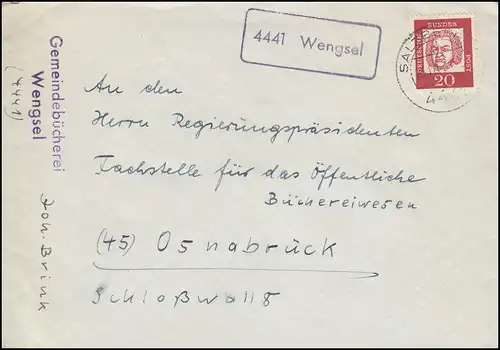 4441 Wengsel
DEUTSCHE BUNDES POST
20
Gemeindebücherei
Wengsel
(4441)
Joh. Brink
An den
Herrn Regierungspräsidenten
Fachstelle für das Öffentliche
Büchereiwesen
(45) Osnabrück
Schloßwall 8